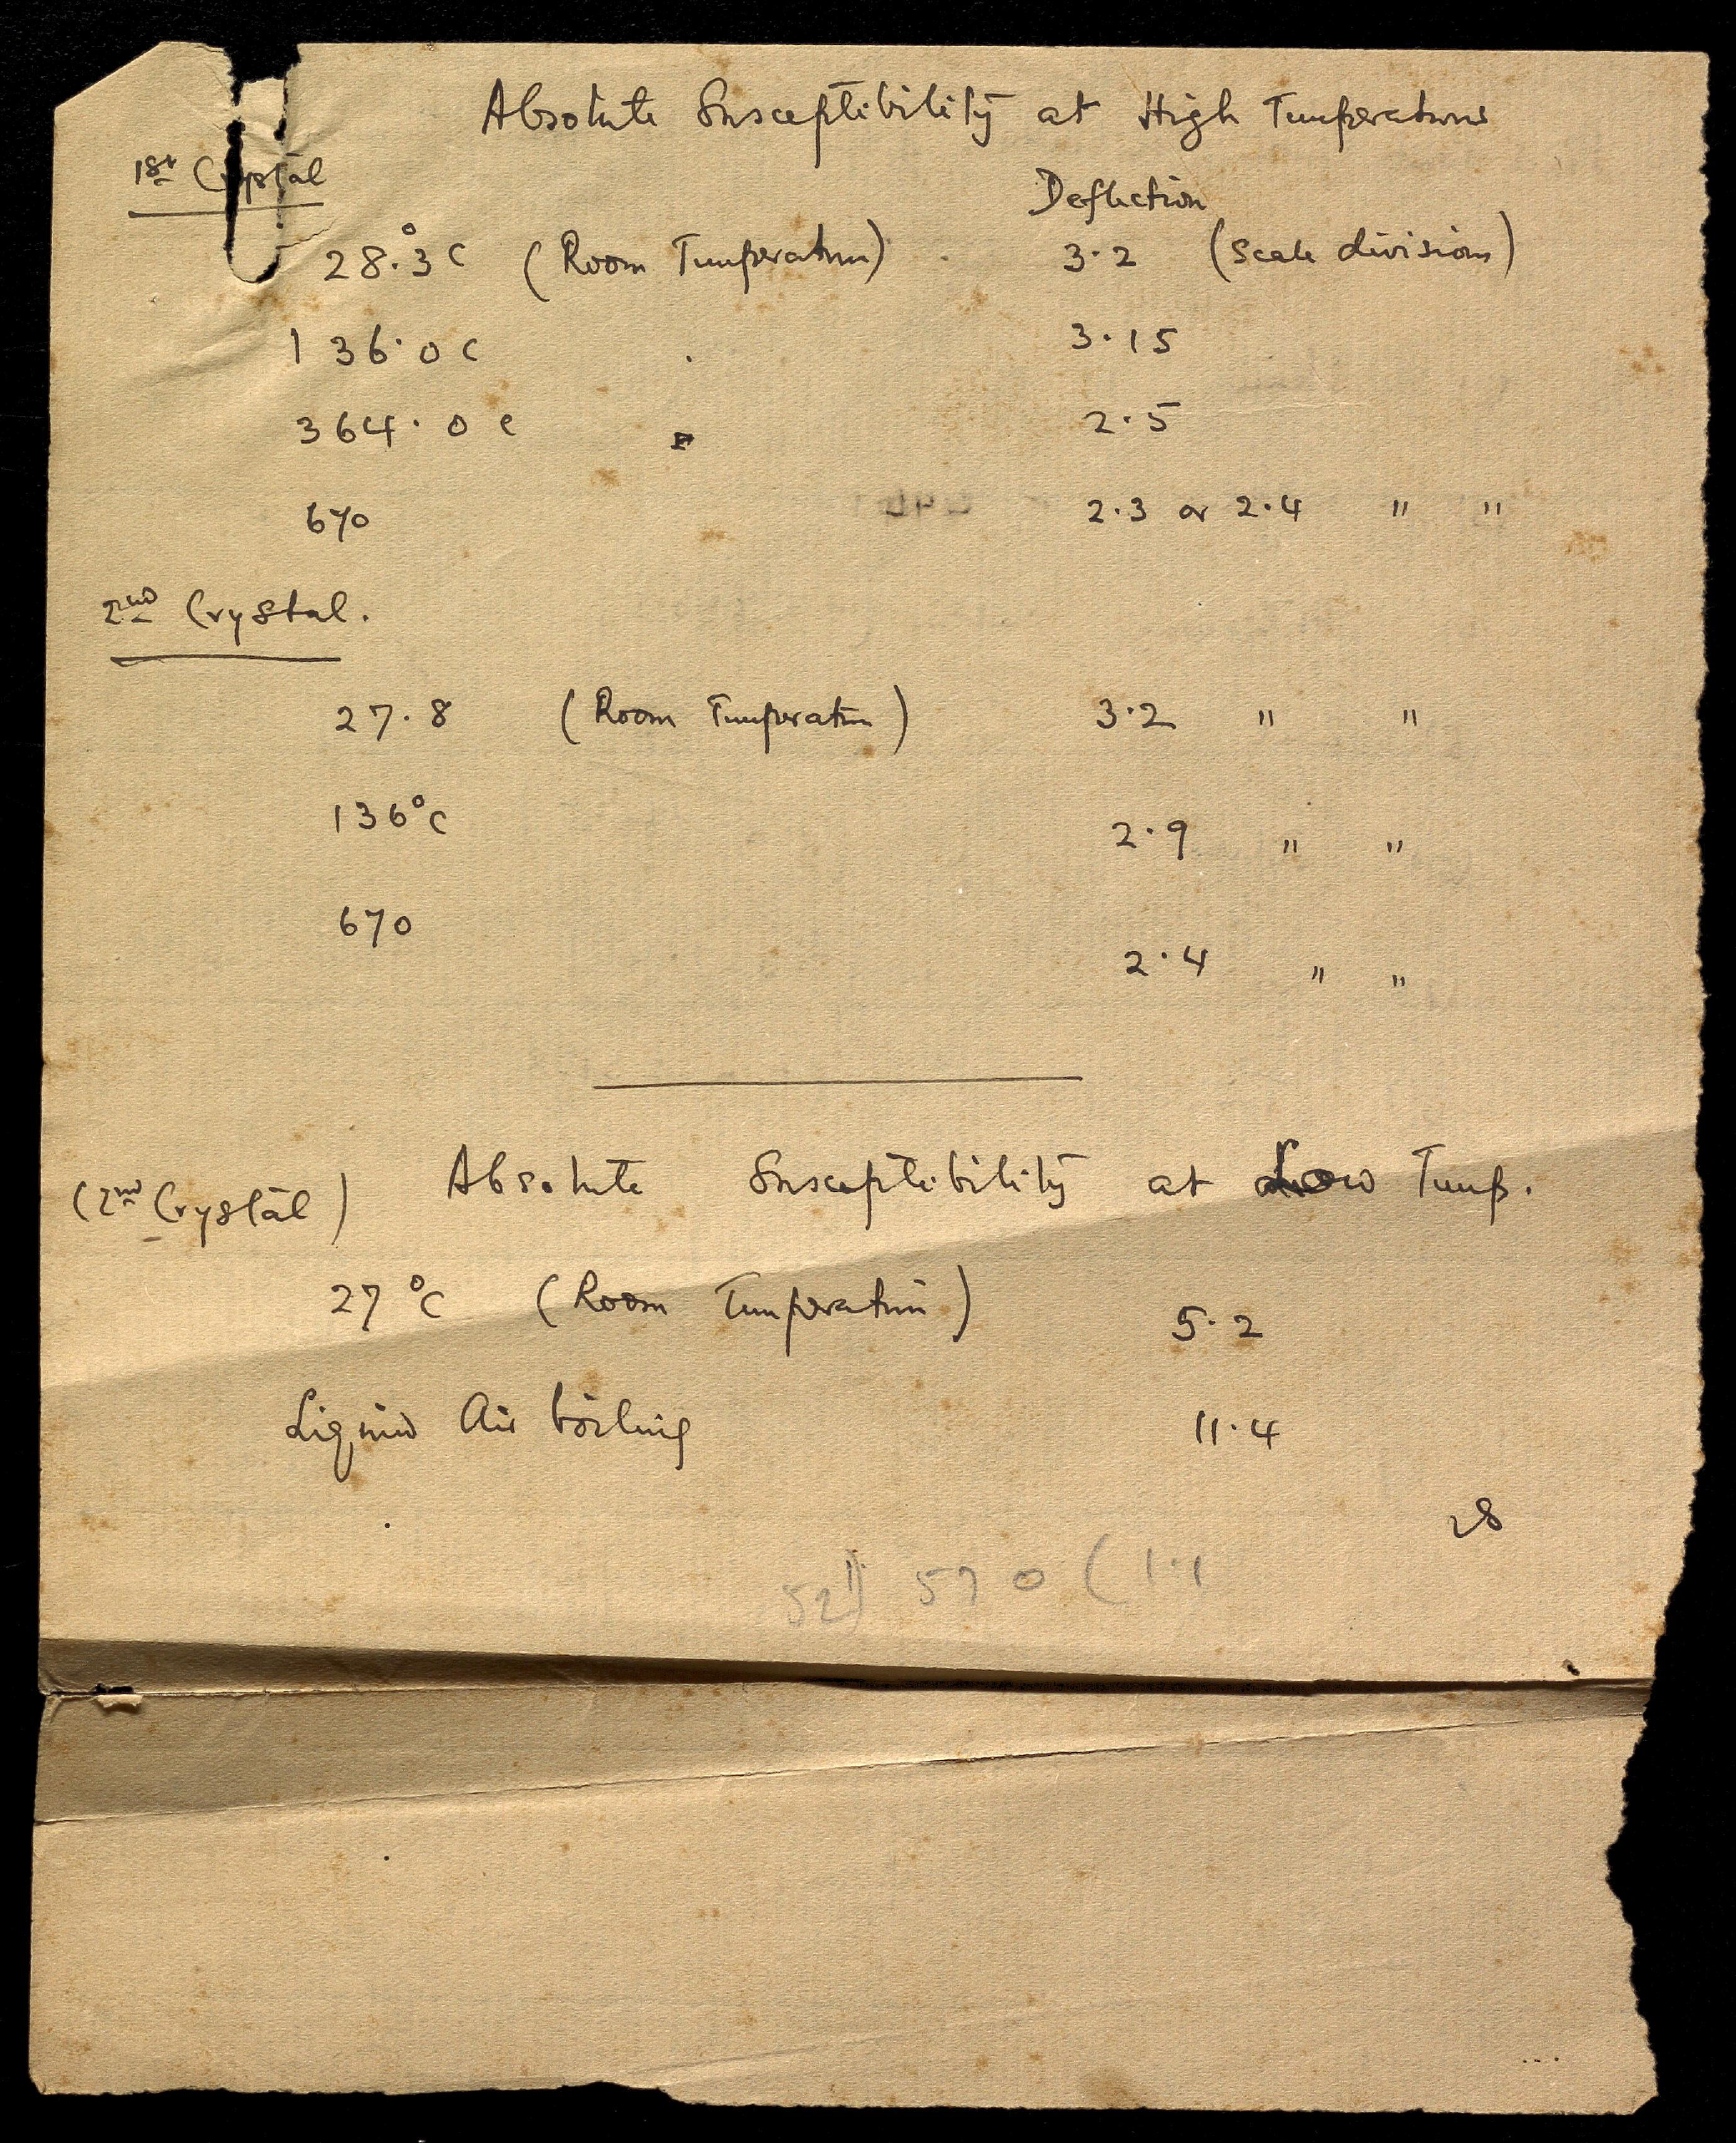 Absolute Susceptibility at High Temperatures
1st Crystal
Deflection
28.°3 C (Room Temperature) 3.2 (Scale divisions)
136.0 C 3.15
364.0 C 2.5
670 2.3 or 2.4 " "
2nd Crystal.
27.8 (Room Temperature) 3.2 " "
136°C 2.9 " "
670 2.4 " "
(2nd Crystal) Absolute Susceptibility at Low Temp.
27 °C (Room Temperature) 5.2
Liquid Air boiling 11.4
28
52) 570 (1.1